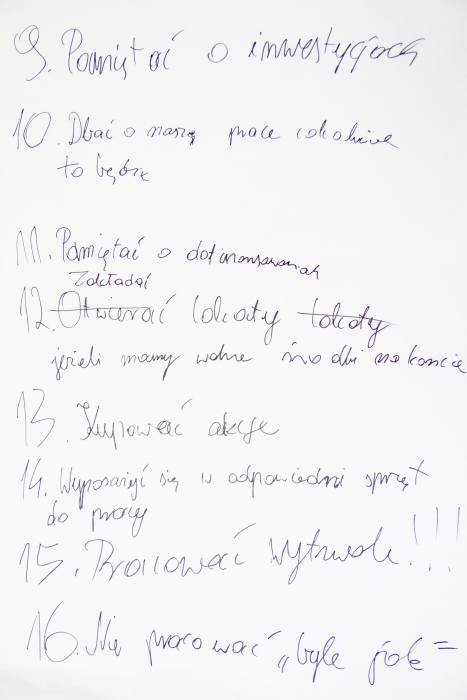 9. Pamiętać o inwestycjach
10. Dbać o naszą prace cokolwiek
to będzie
11. Pamiętać o dofinansowaniach
Zakładać
12. Otwierać lokaty lokaty
jeżeli mamy wolne środki na koncie
13. Kupować akcje
14. Wyposażyć się w odpowiedni sprzęt
do pracy
15. Pracować wytrwale!!!
16. Nie pracować „byle jak"